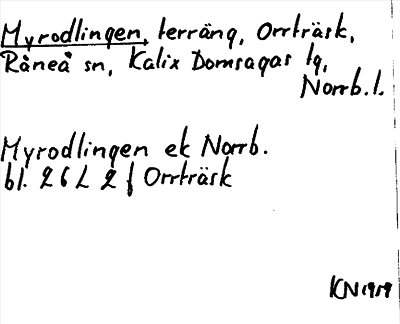 Myrodlingen, terräng, Orrträsk,
Råneå sn, Kalix Domsagas tg,
Norrb. l.
Myrodlingen ek Norrb.
bl. 26 L 2 f Orrträsk
KN 1959